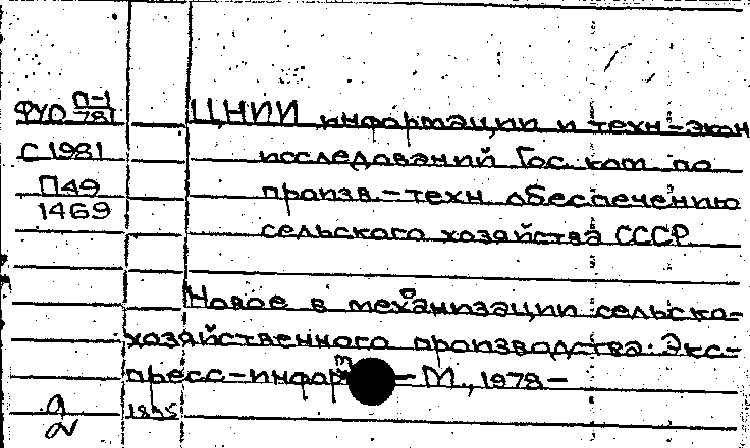 ФУО П-1/781 ЦНИИ информации и техн-экон
С1981 исследований Гос. ком по
П49 произв.-техн обеспечению
1469
сельского хозяйства СССР
Новое в механизации сельско-
хозяйственного производства. Экс-
пресс-информ - М., 1978-